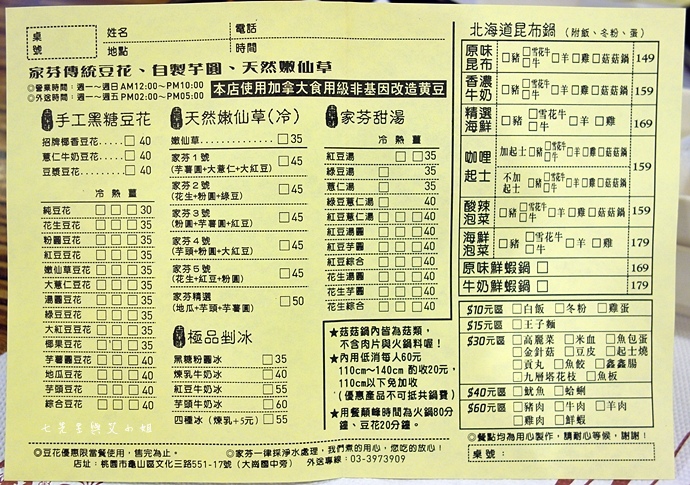 桌號
姓名
電話
地點
時間
家芬傳統豆花、自製芋圓、天然嫩仙草
◎營業時間:週一~週日AM12:00~PM10:00
◎外送時間:週一~週日PM02:00~PM05:00
本店使用加拿大食用級非基因改造黄豆
手工黑糖豆花
招牌椰香豆花....□ 40
薏仁牛奶豆花....□ 40
豆漿豆花........□ 40
冷 熱 薑
純豆花 □ □ □ 30
花生豆花 □ □ □ 35
粉圓豆花 □ □ □ 35
紅豆豆花 □ □ □ 35
嫩仙草豆花 □ □ □ 35
大薏仁豆花 □ □ □ 35
湯圓豆花 □ □ □ 35
綠豆豆花 □ □ □ 35
大紅豆豆花 □ □ □ 35
椰果豆花 □ □ □ 35
芋薯圓豆花 □ □ □ 40
地瓜豆花 □ □ □ 40
芋頭豆花 □ □ □ 40
綜合豆花 □ □ □ 40
天然嫩仙草(冷)
嫩仙草..............□35
家芬1號
(芋薯圓+大薏仁+大紅豆) □45
家芬2號
(花生+粉圓+綠豆) □45
家芬3號
(粉圓+芋薯圓+紅豆) □45
家芬4號
(芋頭+粉圓+大紅豆) □45
家芬5號
(花生+紅豆+粉圓) □45
家芬精選
(地瓜+芋頭+芋薯圓) □50
極品剉冰
黑糖粉圓冰 □35
煉乳牛奶冰 □40
紅豆牛奶冰 □55
芋頭牛奶冰 □60
四種冰(煉乳+5元) □55
家芬甜湯
冷 熱 薑
紅豆湯 □ □35
綠豆湯 □ 35
薏仁湯 □ 35
綠豆薏仁湯 □ 40
紅豆薏仁 □ □ □40
紅豆湯圓 □ □ □40
紅豆芋圓 □ □ □40
紅豆綜合 □ □ □40
花生湯圓 □ □ □40
花生芋圓 □ □ □40
花生綜合 □ □ □40
★菇菇鍋內皆為菇類,
不含肉片與火鍋料喔!
★內用低消每人60元
110cm~140cm 酌收20元,
110cm以下免加收
(優惠產品不可抵共鍋費)
★用餐顛峰時間為火鍋80分
鐘、豆花20分鐘。
北海道昆布鍋(附飯、冬粉、蛋)
原味昆布 □豬 □雪花牛 □牛 □羊 □雞 □菇菇鍋 149
香濃牛奶 □豬 □雪花牛 □牛 □羊 □雞 □菇菇鍋 159
精選海鮮 □豬 □雪花牛 □牛 □羊 □雞 169
咖哩起士 加起士 □豬 □雪花牛 □牛 □羊 □雞 □菇菇鍋 159
不加起士 □豬 □雪花牛 □牛 □羊 □雞 □菇菇鍋
酸辣泡菜 □豬 □雪花牛 □牛 □羊 □雞 □菇菇鍋 159
海鮮泡菜 □豬 □雪花牛 □牛 □羊 □雞 179
原味鮮蝦鍋 □ 169
牛奶鮮蝦鍋 □ 179
$10元區 □白飯 □冬粉 □雞蛋
$15元區 □王子麵
$30元區 □高麗菜 □米血 □魚包蛋
□金針菇 □豆皮 □起士燒
□貢丸 □魚餃 □鑫鑫腸
□九層塔花枝 □魚板
$40元區 □魷魚 □蛤蜊
$60元區 □豬肉 □牛肉 □羊肉
□雞肉 □鮮蝦
◎餐點均為用心製作,請耐心等候,謝謝!
桌號:
七星李與艾小姐
◎豆花優惠限當餐使用,售完為止。 ◎家芬一律採淨水處理,我們煮的用心,您吃的放心!
店址:桃園市龜山區文化三路551-17號(大崗國中旁) 外送專線:03-3973909